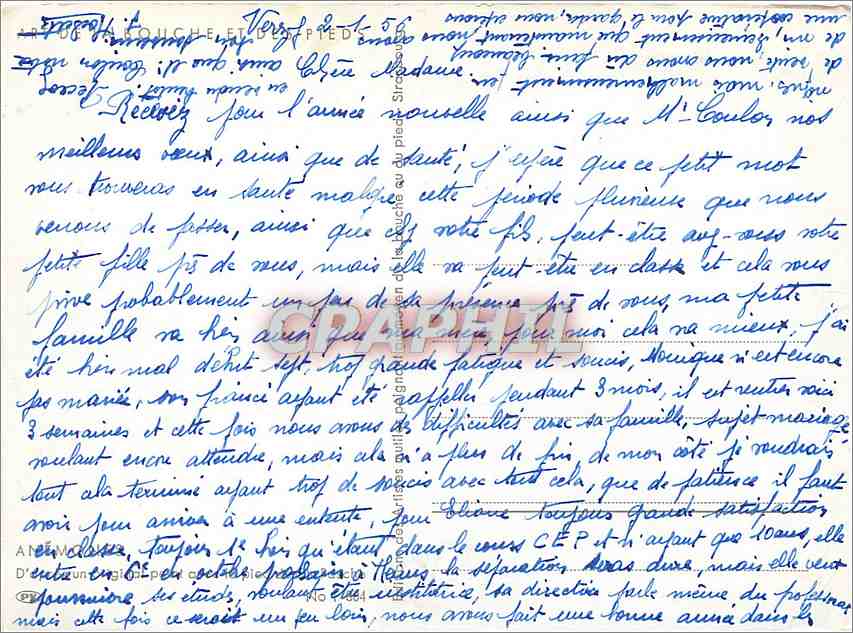 ART DE LA BOUCHE ET DES PIEDS
2-1-
Chère Madame,
Recevez pour l'année nouvelle ainsi que Mr Coulon nos
meilleurs vœux, ainsi que de santé, j'espère que ce petit mot
vous trouveras en santé malgré cette période pluvieuse que nous
venons de passer, ainsi que chez votre fils, peut-être avez-vous votre
petite fille près de vous, mais elle va peut-être en classe et cela vous
prive probablement un peu de sa présence près de vous, ma petite
famille va bien ainsi que ma mère, pour moi cela va mieux, j'ai
été bien mal début sept, trop grande fatigue et soucis, Monique n'est encore
pas mariée, son fiancé ayant été rappeller pendant 3 mois, il est rentrer voici
3 semaines et cette fois nous avons des difficultés avec sa famille, sujet mariage
voulant encore attendre, mais cela n'a plus de fin, de mon côté je voudrais
tout cela terminé ayant trop de soucis avec tout cela, que de patience il faut
avoir pour arriver à une entente, pour Eliane toujours grande satisfaction
en classe, toujours 1e bien qu'étant dans le cours C.E.P et n'ayant que 10 ans, elle
entre en 6e en octobre prochain à Mans, la séparation seras dure, mais elle veut
poursuivre ses études, voulant être institutrice, sa directrice parle même du professorat
mais cette fois ce serait un peu loin, nous avons fait une bonne année dans les
de santé nous avons du
de vin, sincèrement que maintenant, nous avons
une coopérative pour le garder, nous espérons
mais malheureusement
ainsi que Mr Coulon
CPAPHIL
ANÉMONES
D'après un original peint avec le pied par
No. 1-664
Edition des Artistes qui peignent au moyen de la bouche ou du pied, Strasbourg